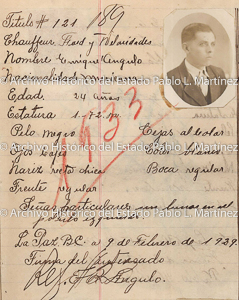 Título # 121 189
Chauffeur, Ford y Velocidades.
Nombre Enrique Angulo
Nacionalidad mexicana
Archivo Histórico del Estado Pablo L. Martínez
Edad. 24 años
Estatura 1.
Pelo negro Cejas al color
1933
Ojos café Color blanco
Archivo Histórico del Estado Pablo L. Martínez
Nariz recta chica Boca regular
Frente regular
Señas particulares un lunar en el
Archivo Histórico del Estado Pablo L. Martínez
izquierdo
La Paz, B.C. a 9 de Febrero de 1929.
Firma del Interesado
Angulo.